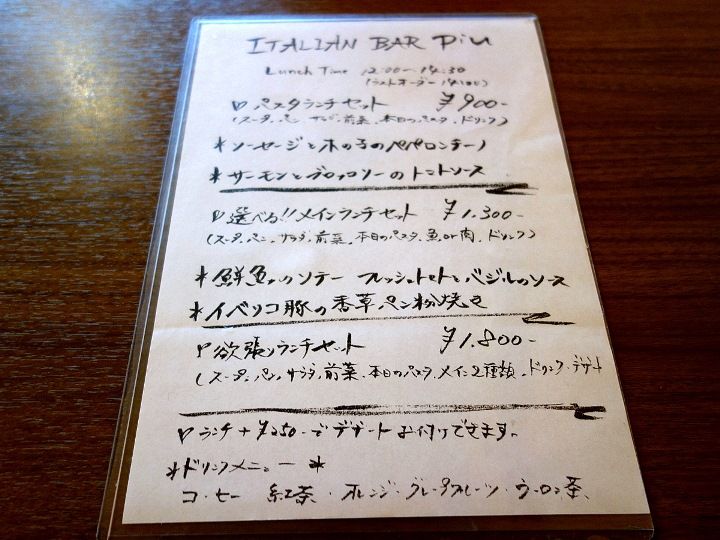 ITALIAN BAR Piu
Lunch Time 12:00~14:30
(ラストオーダー 14:00)
パスタランチセット ¥900-
(スープ、パン、サラダ、前菜、本日のパスタ、ドリンク)
*ソーセージと木の子のペペロンチーノ
*サーモンとブロッコリーのトマトソース
選べる!!メインランチセット ¥1.300-
(スープ、パン、サラダ、前菜、本日のパスタ、魚or肉、ドリンク)
*鮮魚のソテー フレッシュトマトとバジルのソース
*イベリコ豚の香草パン粉焼き
欲張りランチセット ¥1.800-
(スープ、パン、サラダ、前菜、本日のパスタ、メイン2種類、ドリンク・デザート
ランチ+¥250-でデザートお付けできます。
*ドリンクメニュー*
コーヒー 紅茶・オレンジ・グレープフルーツ・ウーロン茶、